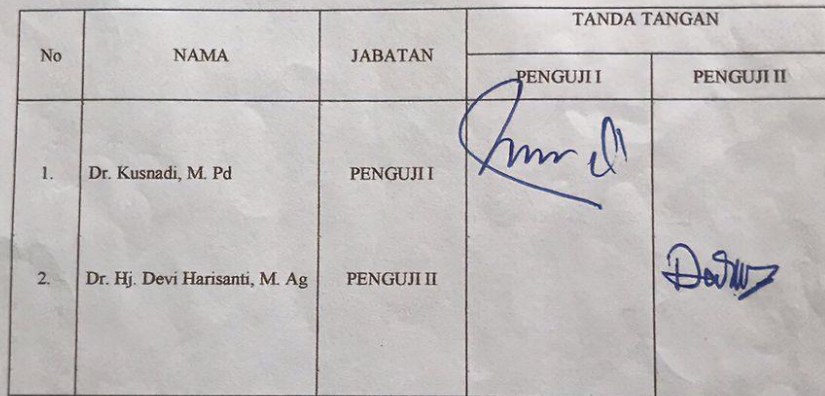 No NAMA JABATAN TANDA TANGAN
PENGUJI I PENGUJI II
1. Dr. Kusnadi, M. Pd PENGUJI I
2. Dr. Hj. Devi Harisanti, M. Ag PENGUJI II